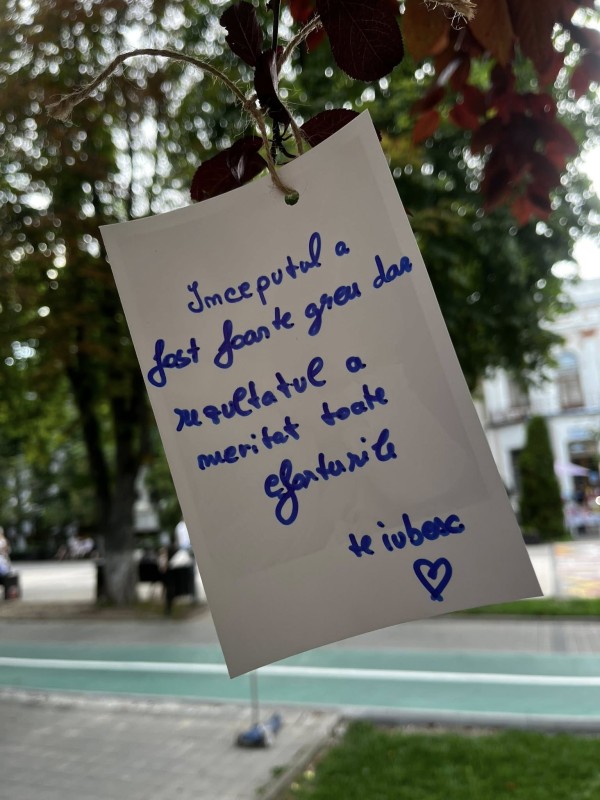 Începutul a
fost foarte greu dar
rezultatul a
meritat toate
eforturile
te iubesc